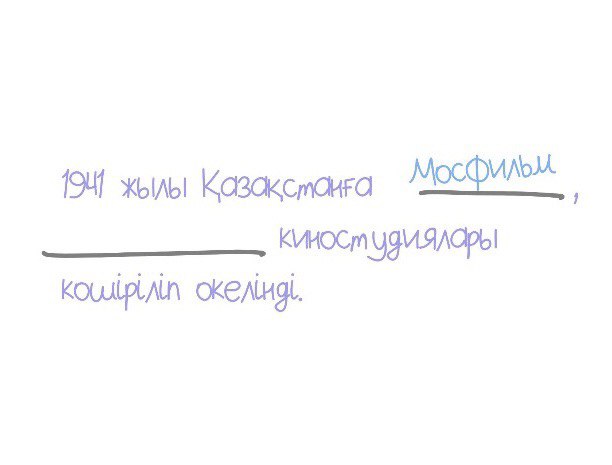 1941 жылы Қазақстанға Мосфильм,
киностудиялары
кошіріліп окелінді.